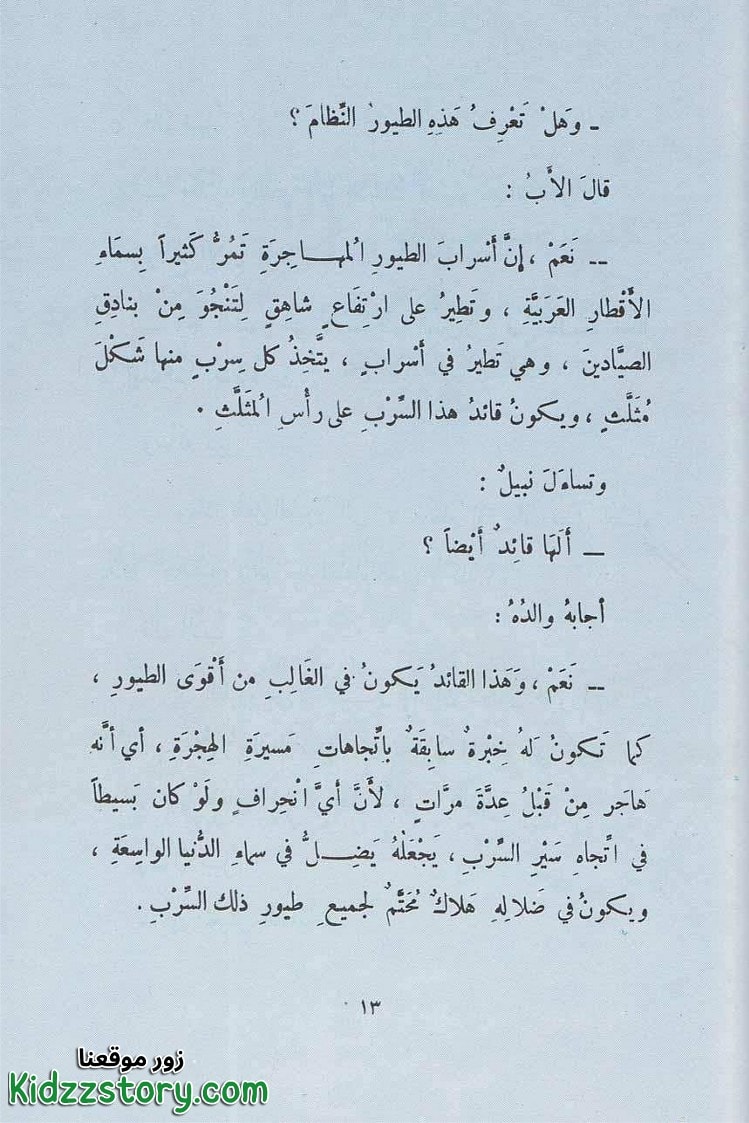 ـ وَهَلْ تَعْرِفُ هَذِهِ الطيورُ النِّظامَ ؟
قالَ الأَبُ :
ــ نَعَمْ ، إنَّ أَسْرابَ الطيورِ المهـاجِرَةِ تَمُرُّ كَثيراً بِسمَاءِ
الأَقْطارِ العَرَبيَّةِ ، وتَطيرُ على ارْتِفَاعٍ شاهِقٍ لِتَنْجُوَ مِنْ بنادِقِ
الصيَّادينَ ، وهي تَطيرُ في أَسْرابٍ ، يتَّخِذُ كل سِرْبٍ منها شَكْلَ
مُثَلَّثٍ ، ويكونُ قائدُ هذا السِّرْبِ على رأْسِ المثَلَّثِ .
وتساءَلَ نبيلٌ :
ــ أَلَهَا قائِدٌ أَيْضاً ؟
أجابهُ والدُهُ :
ــ نَعَمْ ، وَهَذا القائدُ يَكونُ في الغَالِبِ من أَقْوَى الطيورِ ،
كما تَكونُ لهُ خِبْرةٌ سابِقَةٌ باتِّجاهاتِ مَسيرَةِ الهِجْرَةِ ، أي أنَّه
هَاجَر مِنْ قَبْلُ عِدَّةَ مرَّاتٍ ، لأَنَّ أَيَّ انْحِرافٍ ولَوْ كان بَسيطاً
في اتِّجاهِ سَيْرِ السِّرْبِ ، يَجْعَلُهُ يَضِـلُّ في سماءِ الدُّنيا الواسِعَةِ ،
ويكونُ في ضَلالِهِ هَلاكٌ مُحَتَّمٌ لجميعِ طيورِ ذلك السِّرْبِ .
١٣
زور موقعنا
Kidzzstory.com